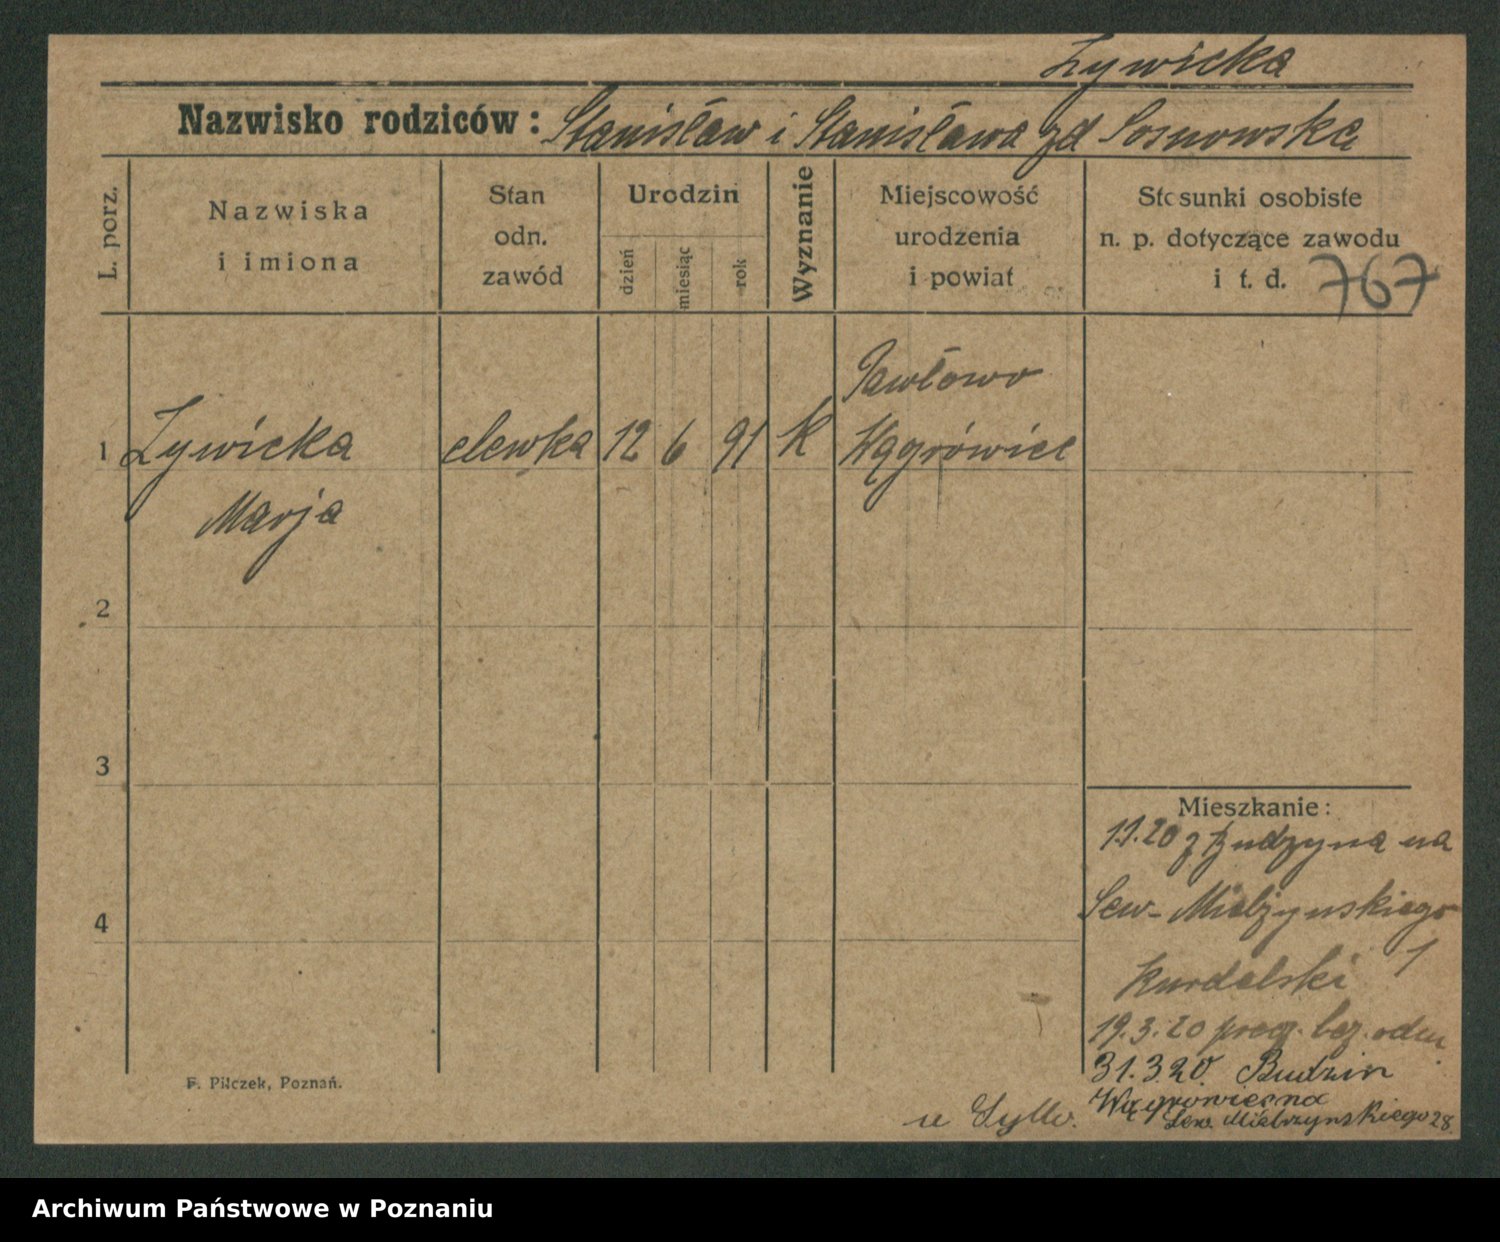 Żywicka
Nazwisko rodziców: Stanisław i Stanisława zd Sosnowska
L. porz.
Nazwiska
i imiona
Stan
odn.
zawód
Urodzin
dzień
miesiąc
rok
Wyznanie
Miejscowość
urodzenia
i powiat
Stosunki osobiste
n. p. dotyczące zawodu
i t. d. 767
Pawłowo
1 Żywicka elewka 12 6 91 k Wągrówiec
Marja
2
3
Mieszkanie:
1.1.20 z Budzyna na
Sew. Mielżynskiego
4
Kurdelski 1
19.3.20
31.3.20. Budzin
F. Pilczek, Poznań.
Sew. Mielżynskiego 28.
Archiwum Państwowe w Poznaniu